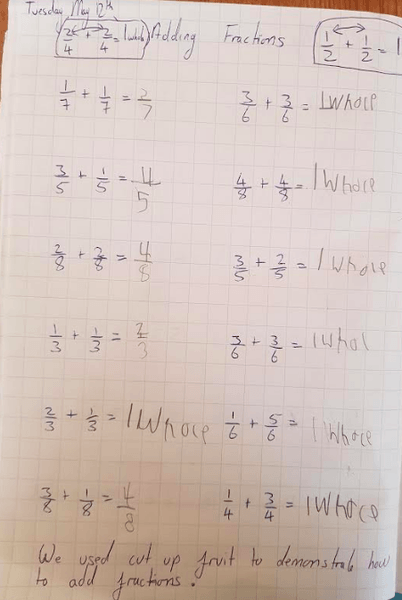 Tuesday May 12th
2/4 + 2/4 = 1 whole Adding Fractions 1/2 + 1/2 = 1
1/7 + 1/7 = 2/7 3/6 + 3/6 = 1 Whole
3/5 + 1/5 = 4/5 4/8 + 4/8 = 1 Whole
2/8 + 2/8 = 4/8 3/5 + 2/5 = 1 Whole
1/3 + 1/3 = 2/3 3/6 + 3/6 = 1 whol
2/3 + 1/3 = 1 Whole 1/6 + 5/6 = 1 Whole
3/8 + 1/8 = 4/8 1/4 + 3/4 = 1 Whole
We used cut up fruit to demonstrate how
to add fractions.